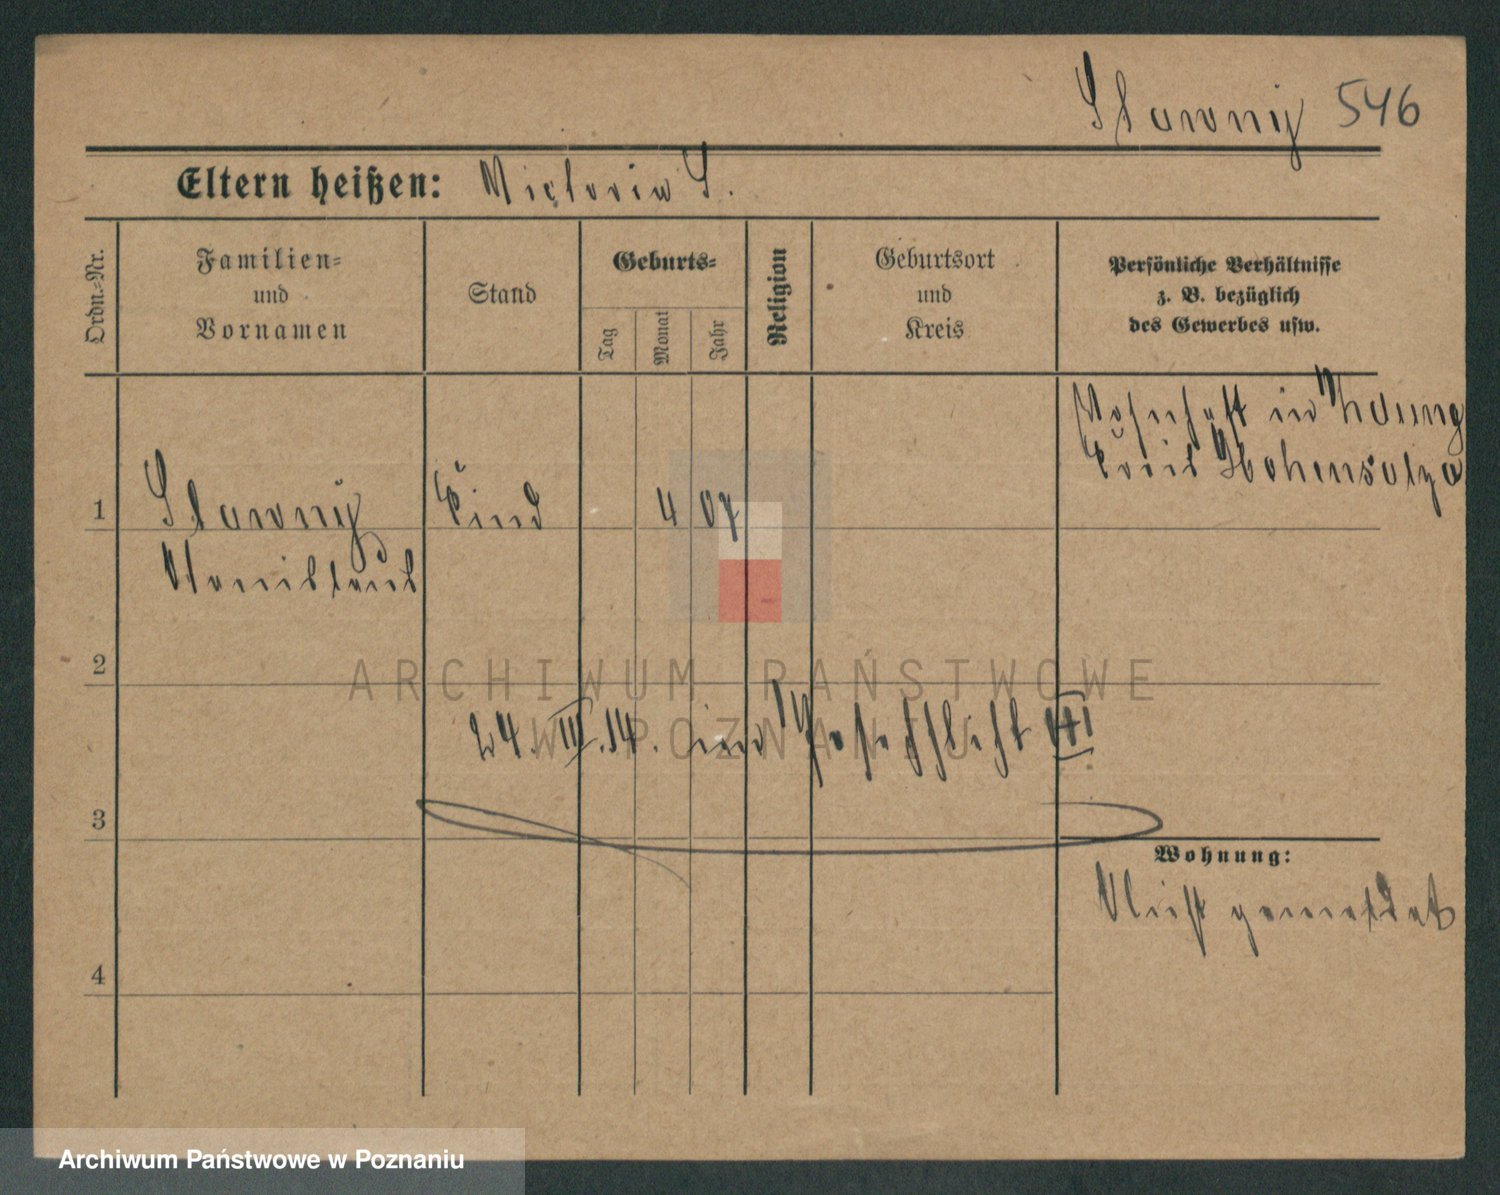 Slawny 546
Eltern heißen: Victoria S.
Ordn.-Nr.
Familien-
und
Vornamen
Stand
Geburts-
Tag
Monat
Jahr
Religion
Geburtsort
und
Kreis
Persönliche Verhältnisse
z. B. bezüglich
des Gewerbes usw.
Wohnhaft in
Kreis Hohensalza
1 Slawny Kind 4 07
2
ARCHIWUM PAŃSTWOWE
W POZNANIU
24. III. 14. in
3
Wohnung:
Nicht gemeldet
4
Archiwum Państwowe w Poznaniu